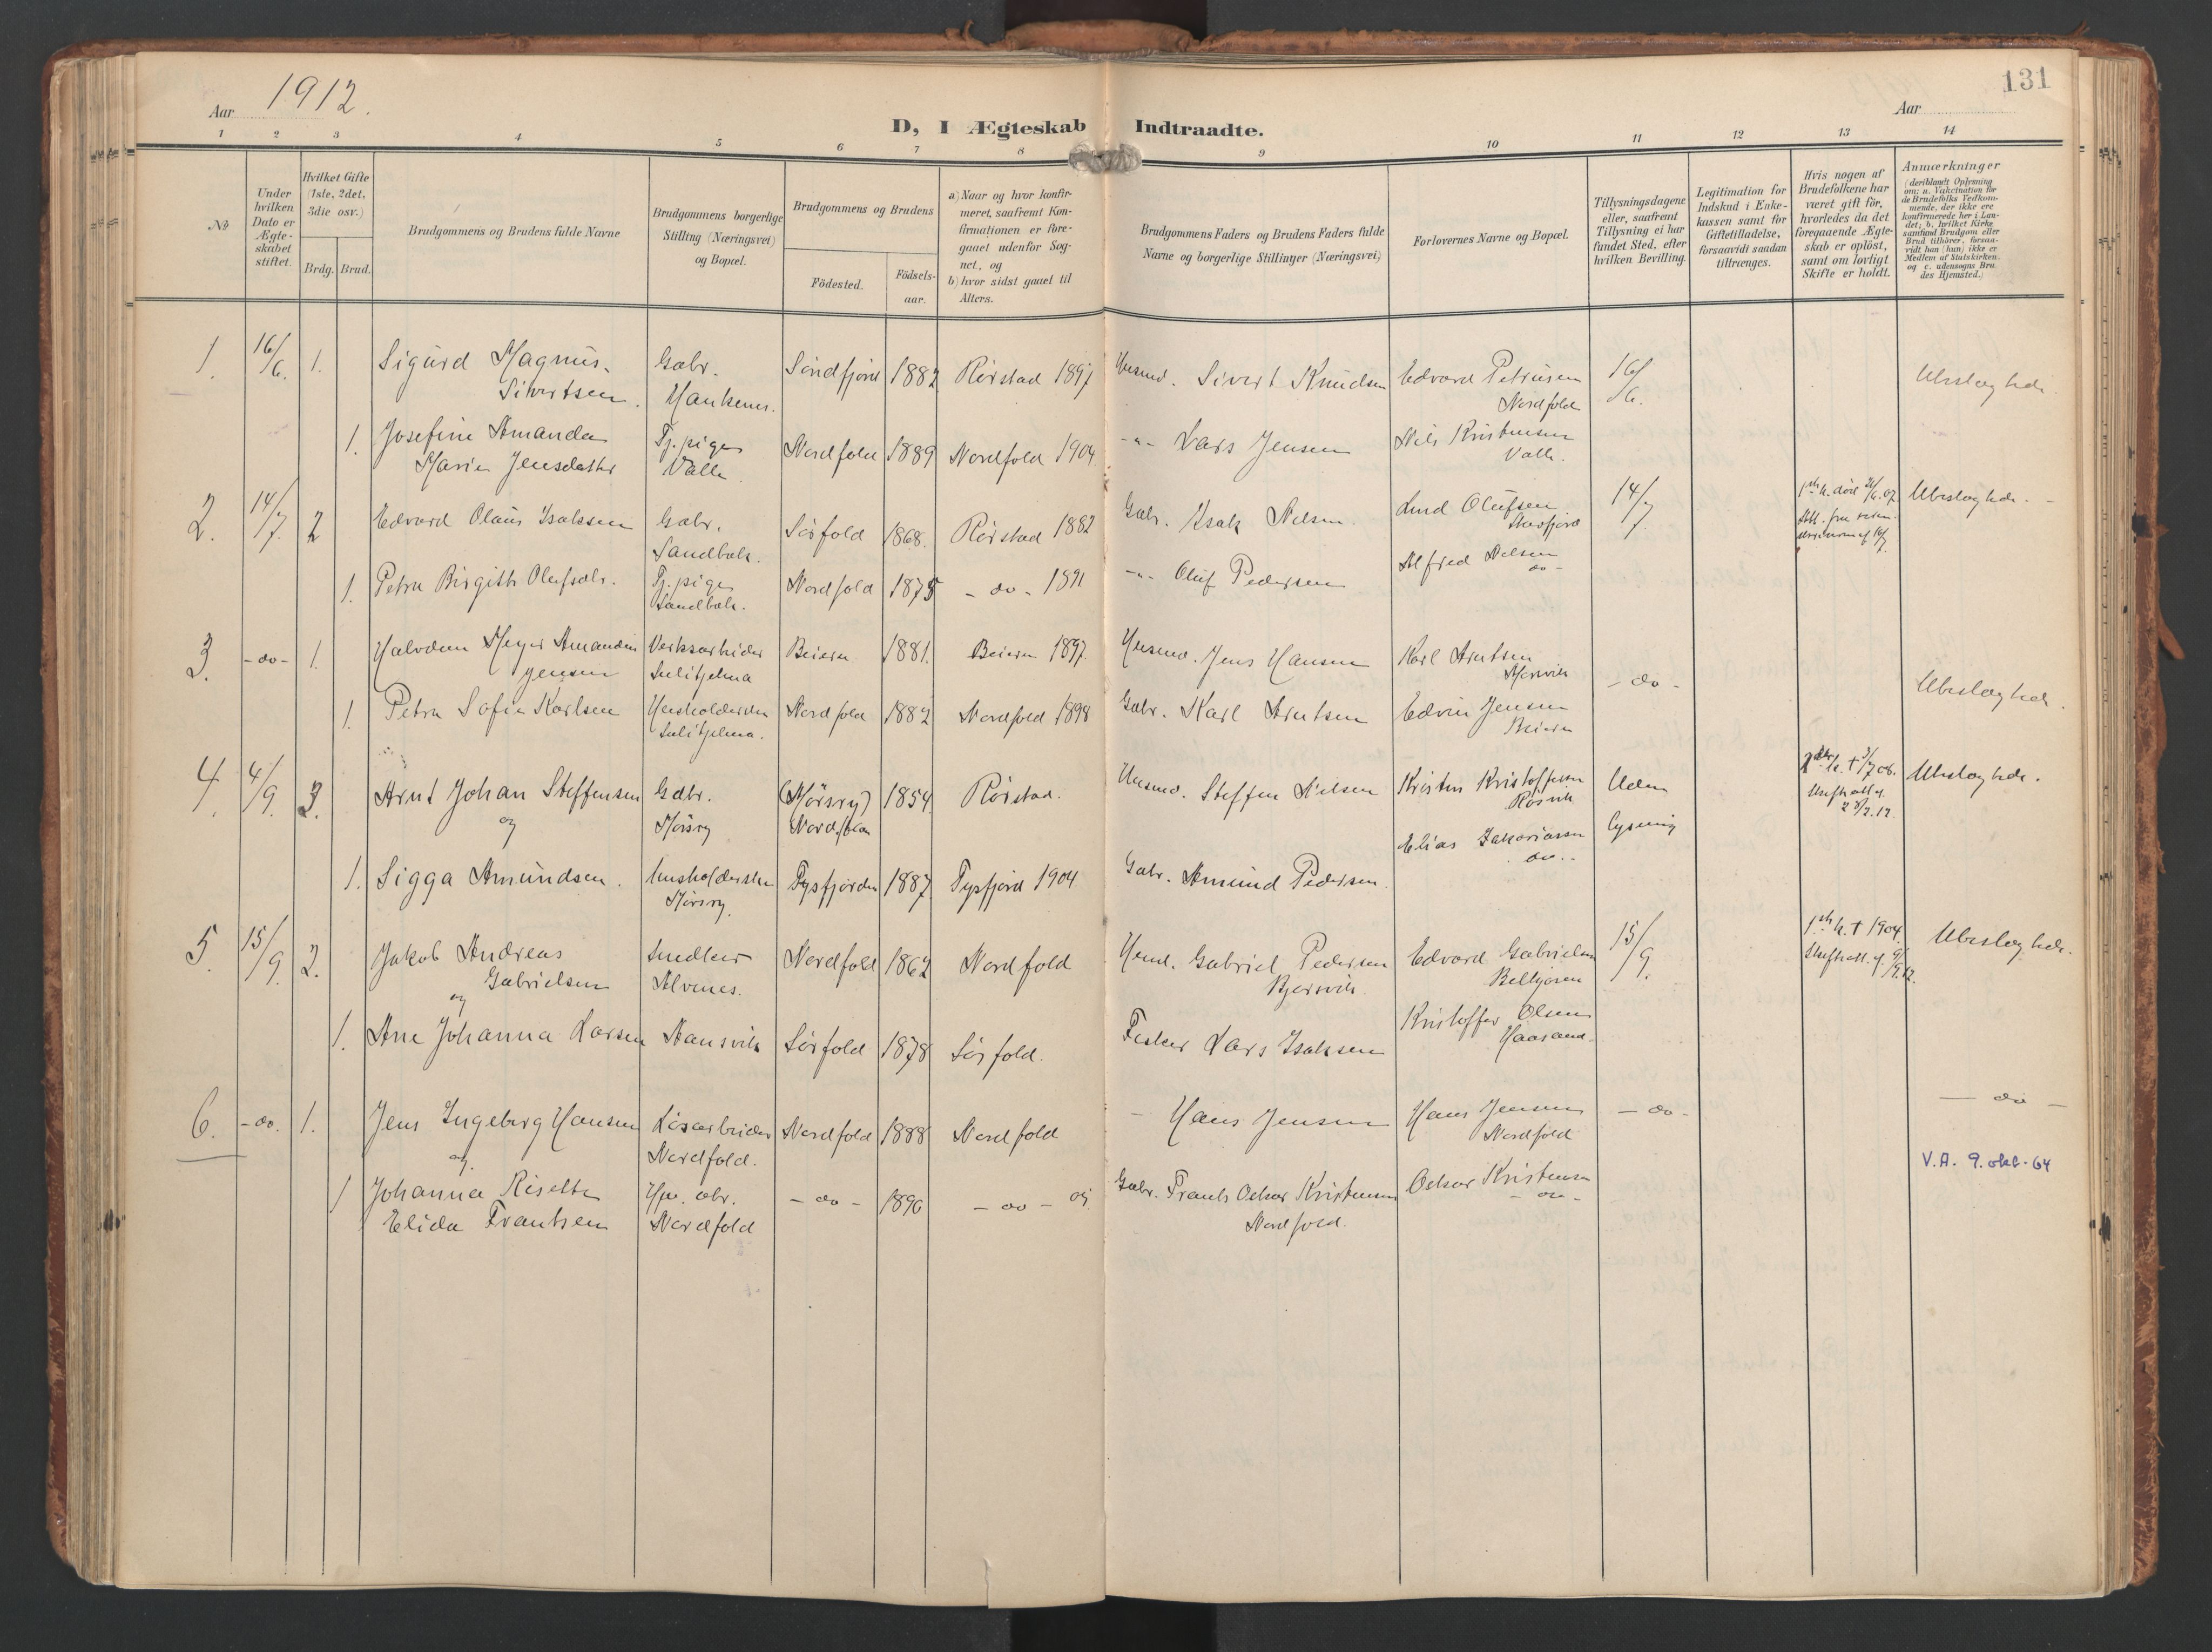 Aar 1912.
131
Aar
D, I Ægteskab Indtraadte.
1 2 3 4 5 6 7 8 9 10 11 12 13 14
No
Under hvilken Dato er Ægte-skabet stiftet.
Hvilket Gifte (1ste, 2det, 3die osv.)
Brdg. Brud.
Brudgommens og Brudens fulde Navne
Brudgommens borgerlige Stilling (Næringsvei) og Bopæl.
Brudgommens og Brudens
Födested.
Födsels-aar.
a) Naar og hvor konfir-meret, saafremt Kon-firmationen er fore-gaaet udenfor Sog-net, og
b) hvor sidst gaaet til Alters.
Brudgommens Faders og Brudens Faders fulde Navne og borgerlige Stillinger (Næringsvei)
Forlovernes Navne og Bopæl.
Tillysningsdagene eller, saafremt Tillysning ei har fundet Sted, efter hvilken Bevilling.
Legitimation for Indskud i Enke-kassen samt for Giftetilladelse, forsaavidt saadan tiltrænges.
Hvis nogen af Brudefolkene har været gift för, hvorledes da det foregaaende Ægte-skab er oplöst, samt om lovligt Skifte er holdt.
Anmærkninger (deriblandt Oplysning om: a. Vakcination for de Brudefolks Vedkom-mende, der ikke ere konfirmerede her i Lan-det; b. hvilket Kirke-samfund Brudgom eller Brud tilhörer, forsaa-vidt han (hun) ikke er Medlem af Statskirken. og c. udensogns Bru-des Hjemsted.)
1. 16/6. 1. Sigurd Magnus Sivertsen. Gabr. Söndfjord 1882 Rörstad 1897 Husmd. Sivert Knudsen Edvard Petrusen Nordfold 16/6. Ubeslægtede
1. Josefine Amanda Marie Jensdatter Tj.pige Valle Nordfold 1889 Nordfold 1904. -"- Lars Jensen Nils Kristensen Valle.
2. 14/7. 2 Edvard Olaus Isaksen Gabr. Sandbak. Sörfold 1868. Rörstad 1882 Gabr. Isak Nilsen. Lund Olufsen 14/7. 1ste h. död Ubeslægtede. -
1. Petra Birgitte Olufsdtr. Tj.pige Sandbak. Nordfold 1875 - do - 1891 -"- Oluf Pedersen Alfred Nilsen do -
3. -do- 1. Halvdan Meyer Amandus Jensen Verksarbeider Sulitjelma Beiern 1881. Beiern 1897. Husmd. Jens Hansen Karl Arntsen - do - Ubeslægtede.
1. Petra Sofie Karlsen Husholderske Sulitjelma. Nordfold 1882 Nordfold 1898 Gabr. Karl Arntsen Edvin Jensen Beiern
4. 4/9. 3. Arnt Johan Steffensen og Gabr. Mörsry (Mörsry) Nordfold 1854 Rörstad. Husmd. Steffen Nilsen Kristen Kristoffersen Rösvik Uden Ubeslægtede.
Elias Zakariassen do.- lysning
1. Sigga Amundsen. Husholderske Mörsry. Tysfjorden 1887 Tysfjord 1904 Gabr. Amund Pedersen.
5. 15/9. 2. Jakob Andreas Gabrielsen og Snedker Alvenes. Nordfold 1862 Nordfold Husmd. Gabriel Pedersen Bjersvik. Edvard Gabrielsen 15/9. 1ste h. + 1904. Ubeslægtede.
1. Ane Johanna Larsen Aansvik Sörfold 1878 Sörfold. Fisker Lars Isaksen Kristoffer Olsen
6. -do. 1. Jens Ingeberg Hansen og. Lösarbeider Nordfold. Nordfold 1888 Nordfold - Hans Jensen Hans Jensen Nordfold - do - - do -
V.A. 9. okt.-64
1 Johanna Risette Elida Frantsen Nordfold - do - 1890 - do - Gabr. Frants Oskar Kristensen Nordfold. Oskar Kristensen - do -